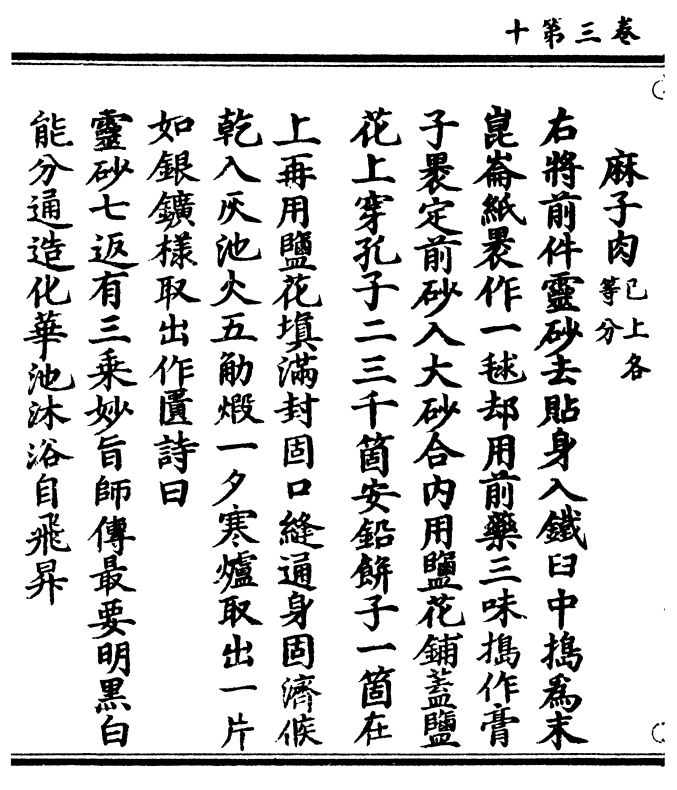 卷三第十
麻子肉已上各等分
右將前件靈砂去貼身入鐵臼中搗爲末
崑崙紙裹作一毬却用前藥三味搗作膏
子裹定前砂入大砂合内用鹽花鋪蓋鹽
花上穿孔子二三千箇安鉛餅子一箇在
上再用鹽花塡滿封固口縫通身固濟候
乾入灰池火五觔煅一夕寒爐取出一片
如銀鑛樣取出作匱詩曰
靈砂七返有三乘妙旨師傳最要明黑白
能分通造化華池沐浴自飛昇